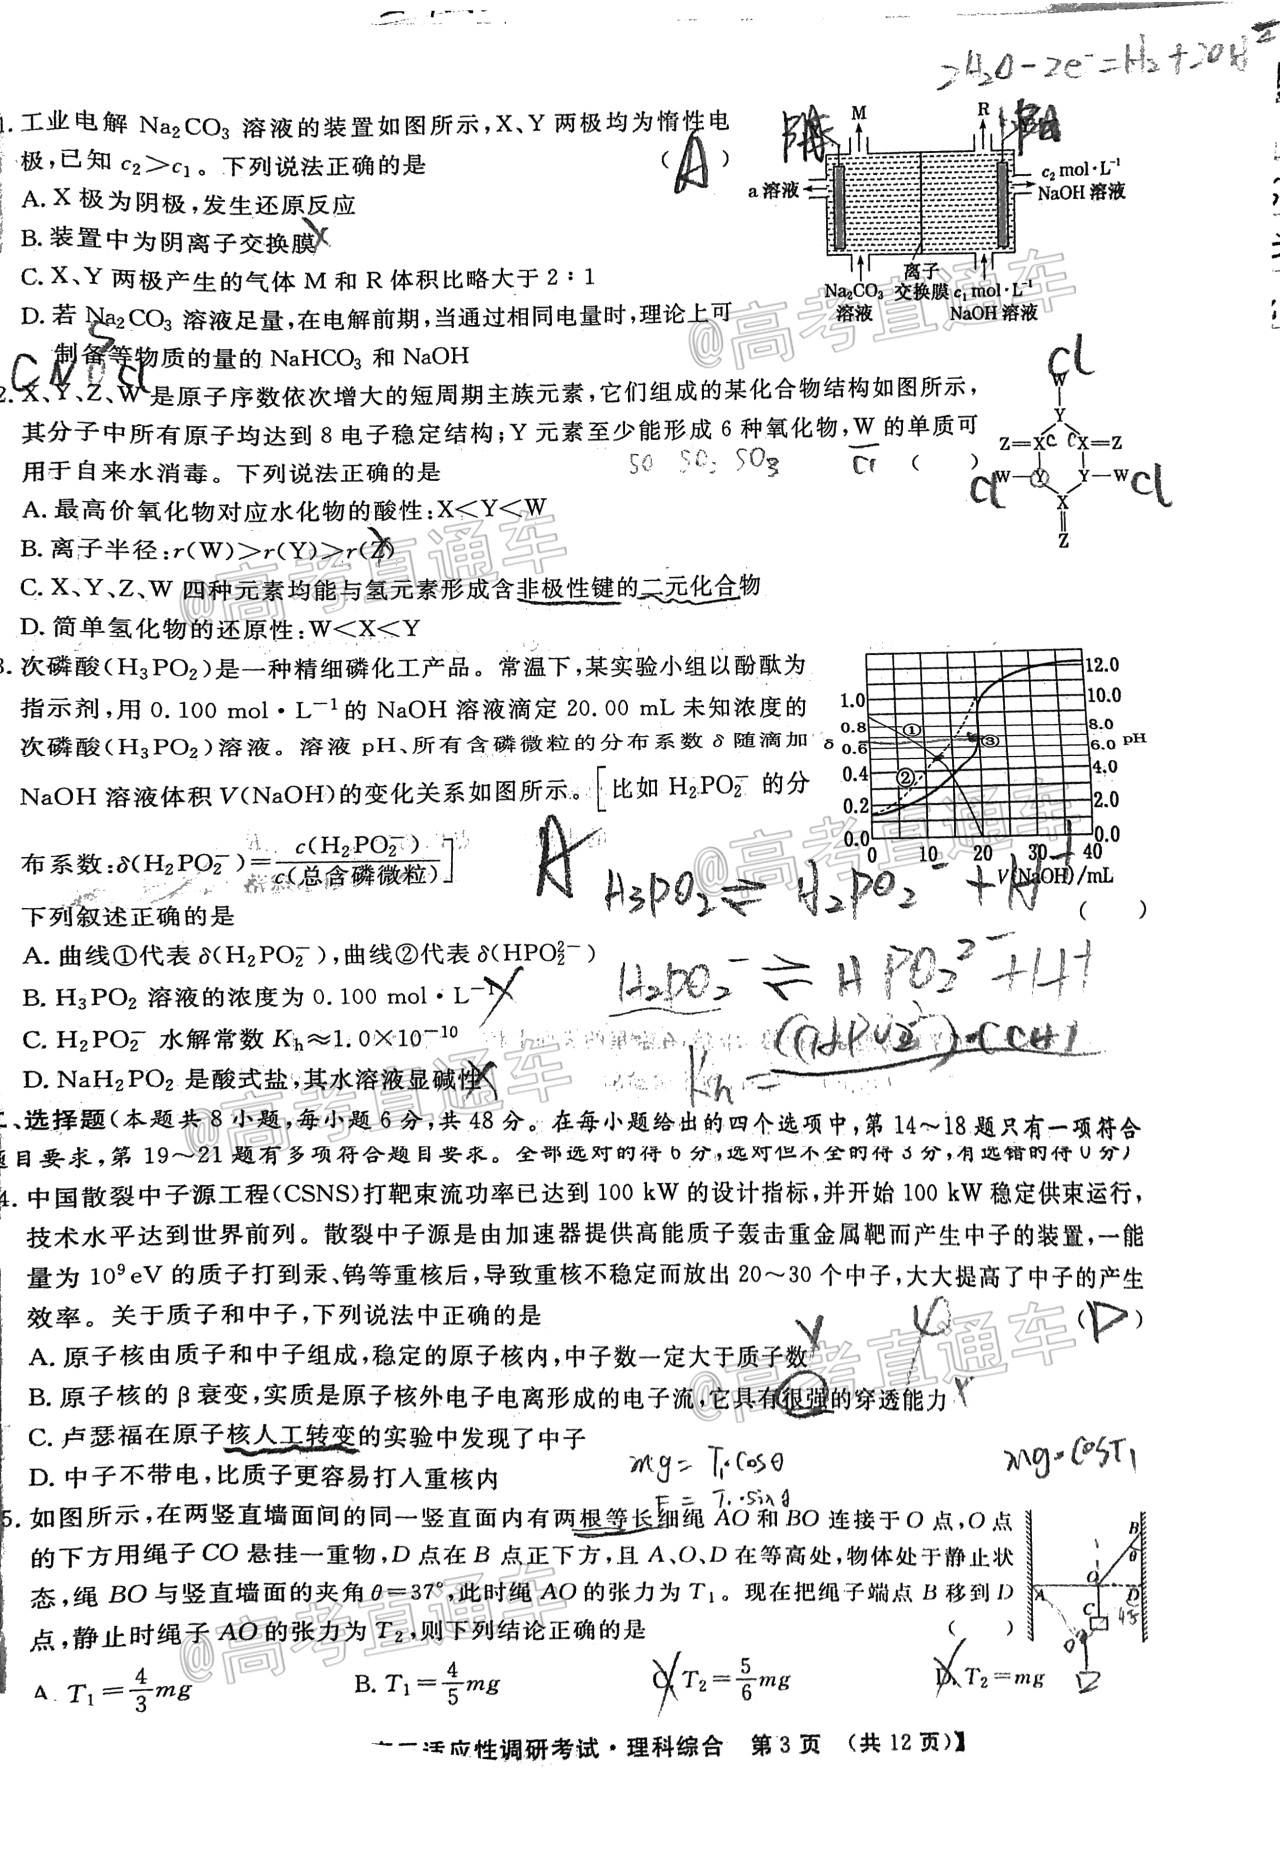 2H₂O-2e⁻=H₂+2OH⁻
1. 工业电解 Na₂CO₃ 溶液的装置如图所示,X、Y 两极均为惰性电
极,已知 c₂>c₁。下列说法正确的是 (A)
A. X 极为阴极,发生还原反应
B. 装置中为阴离子交换膜
C. X、Y 两极产生的气体 M 和 R 体积比略大于 2∶1
D. 若 Na₂CO₃ 溶液足量,在电解前期,当通过相同电量时,理论上可
制备等物质的量的 NaHCO₃ 和 NaOH
M R
a 溶液
c₂ mol·L⁻¹
NaOH 溶液
离子
Na₂CO₃ 交换膜 c₁ mol·L⁻¹
溶液 NaOH 溶液
C N O S Cl
2. X、Y、Z、W 是原子序数依次增大的短周期主族元素,它们组成的某化合物结构如图所示,
其分子中所有原子均达到 8 电子稳定结构;Y 元素至少能形成 6 种氧化物,W 的单质可
用于自来水消毒。下列说法正确的是 ( )
SO SO₂ SO₃ Cl
A. 最高价氧化物对应水化物的酸性:X<Y<W
B. 离子半径:r(W)>r(Y)>r(Z)
C. X、Y、Z、W 四种元素均能与氢元素形成含非极性键的二元化合物
D. 简单氢化物的还原性:W<X<Y
Cl
W
Y
Z=X C C X=Z
Cl W—Y Y—W Cl
X
Z
3. 次磷酸(H₃PO₂)是一种精细磷化工产品。常温下,某实验小组以酚酞为
指示剂,用 0.100 mol·L⁻¹的 NaOH 溶液滴定 20.00 mL 未知浓度的
次磷酸(H₃PO₂)溶液。溶液 pH、所有含磷微粒的分布系数 δ 随滴加
NaOH 溶液体积 V(NaOH)的变化关系如图所示。[比如 H₂PO₂⁻ 的分
布系数:δ(H₂PO₂⁻)=c(H₂PO₂⁻)/c(总含磷微粒)]
下列叙述正确的是 ( )
A. 曲线①代表 δ(H₂PO₂⁻),曲线②代表 δ(HPO₂²⁻)
B. H₃PO₂ 溶液的浓度为 0.100 mol·L⁻¹
C. H₂PO₂⁻ 水解常数 Kₕ≈1.0×10⁻¹⁰
D. NaH₂PO₂ 是酸式盐,其水溶液显碱性
1.0 0.8 0.6 0.4 0.2 0.0
δ
① ② ③
12.0 10.0 8.0 6.0 4.0 2.0 0.0
pH
0 10 20 30 40
V(NaOH)/mL
A
H₃PO₂⇌H₂PO₂⁻+H⁺
H₂PO₂⁻⇌HPO₂²⁻+H⁺
Kh=
二、选择题(本题共 8 小题,每小题 6 分,共 48 分。在每小题给出的四个选项中,第 14～18 题只有一项符合
题目要求,第 19～21 题有多项符合题目要求。全部选对的得 6 分,选对但不全的得 3 分,有选错的得 0 分)
4. 中国散裂中子源工程(CSNS)打靶束流功率已达到 100 kW 的设计指标,并开始 100 kW 稳定供束运行,
技术水平达到世界前列。散裂中子源是由加速器提供高能质子轰击重金属靶而产生中子的装置,一能
量为 10⁹eV 的质子打到汞、钨等重核后,导致重核不稳定而放出 20～30 个中子,大大提高了中子的产生
效率。关于质子和中子,下列说法中正确的是 (D)
A. 原子核由质子和中子组成,稳定的原子核内,中子数一定大于质子数
B. 原子核的 β 衰变,实质是原子核外电子电离形成的电子流,它具有很强的穿透能力
C. 卢瑟福在原子核人工转变的实验中发现了中子
D. 中子不带电,比质子更容易打入重核内
mg=T₁·cosθ
F=T₁·sinθ
mg·cosT₁
5. 如图所示,在两竖直墙面间的同一竖直面内有两根等长细绳 AO 和 BO 连接于 O 点,O 点
的下方用绳子 CO 悬挂一重物,D 点在 B 点正下方,且 A、O、D 在等高处,物体处于静止状
态,绳 BO 与竖直墙面的夹角 θ=37°,此时绳 AO 的张力为 T₁。现在把绳子端点 B 移到 D
点,静止时绳子 AO 的张力为 T₂,则下列结论正确的是 ( )
A. T₁=4/3mg B. T₁=4/5mg C. T₂=5/6mg D. T₂=mg
B
θ
A O D
C
适应性调研考试·理科综合 第 3 页 (共 12 页)】
@高考直通车
@高考直通车
@高考直通车
@高考直通车
@高考直通车
@高考直通车